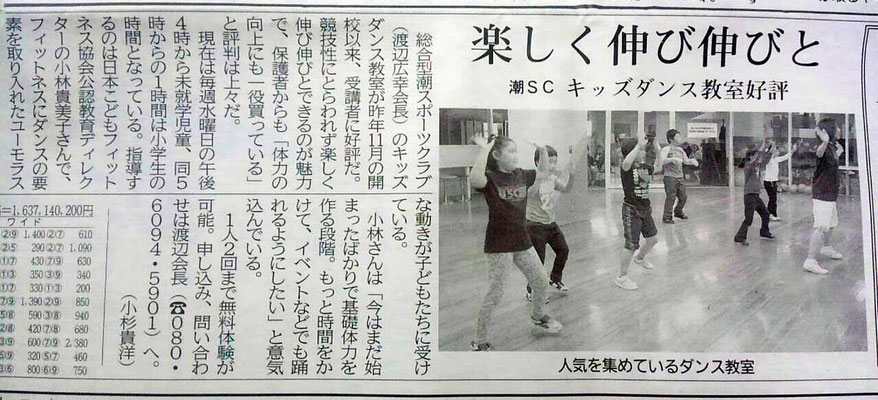 楽しく伸び伸びと
潮SC キッズダンス教室好評
総合型潮スポーツクラブ
(渡辺広幸会長)のキッズ
ダンス教室が昨年11月の開
校以来、受講者に好評だ。
競技性にとらわれず楽しく
伸び伸びとできるのが魅力
で、保護者からも「体力の
向上にも一役買っている」
と評判は上々だ。
現在は毎週水曜日の午後
4時から未就学児童、同5
時からの1時間は小学生の
時間となっている。指導す
るのは日本こどもフィット
ネス協会公認教育ディレク
ターの小林貴美子さんで、
フィットネスにダンスの要
素を取り入れたユーモラス
な動きが子どもたちに受け
ている。
小林さんは「今はまだ始
まったばかりで基礎体力を
作る段階。もっと時間をか
けて、イベントなどでも踊
れるようにしたい」と意気
込んでいる。
1人2回まで無料体験が
可能。申し込み、問い合わ
せは渡辺会長(☎080・
6094・5901)へ。
(小杉貴洋)
人気を集めているダンス教室
USC
=1,637,140,200円
ワイド
②⑨ 1,400 ②⑦ 610
②⑤ 290 ②⑦ 1,090
①⑦ 430 ⑦⑨ 630
①③ 350 ③⑨ 340
①⑦ 330 ①③ 200
⑦⑨ 1,390 ②⑨ 850
⑤⑧ 590 ③⑧ 940
②⑧ 420 ⑦⑧ 680
③⑨ 600 ⑦⑨ 2,380
⑤⑨ 320 ⑤⑦ 460
③⑥ 800 ⑥⑨ 750